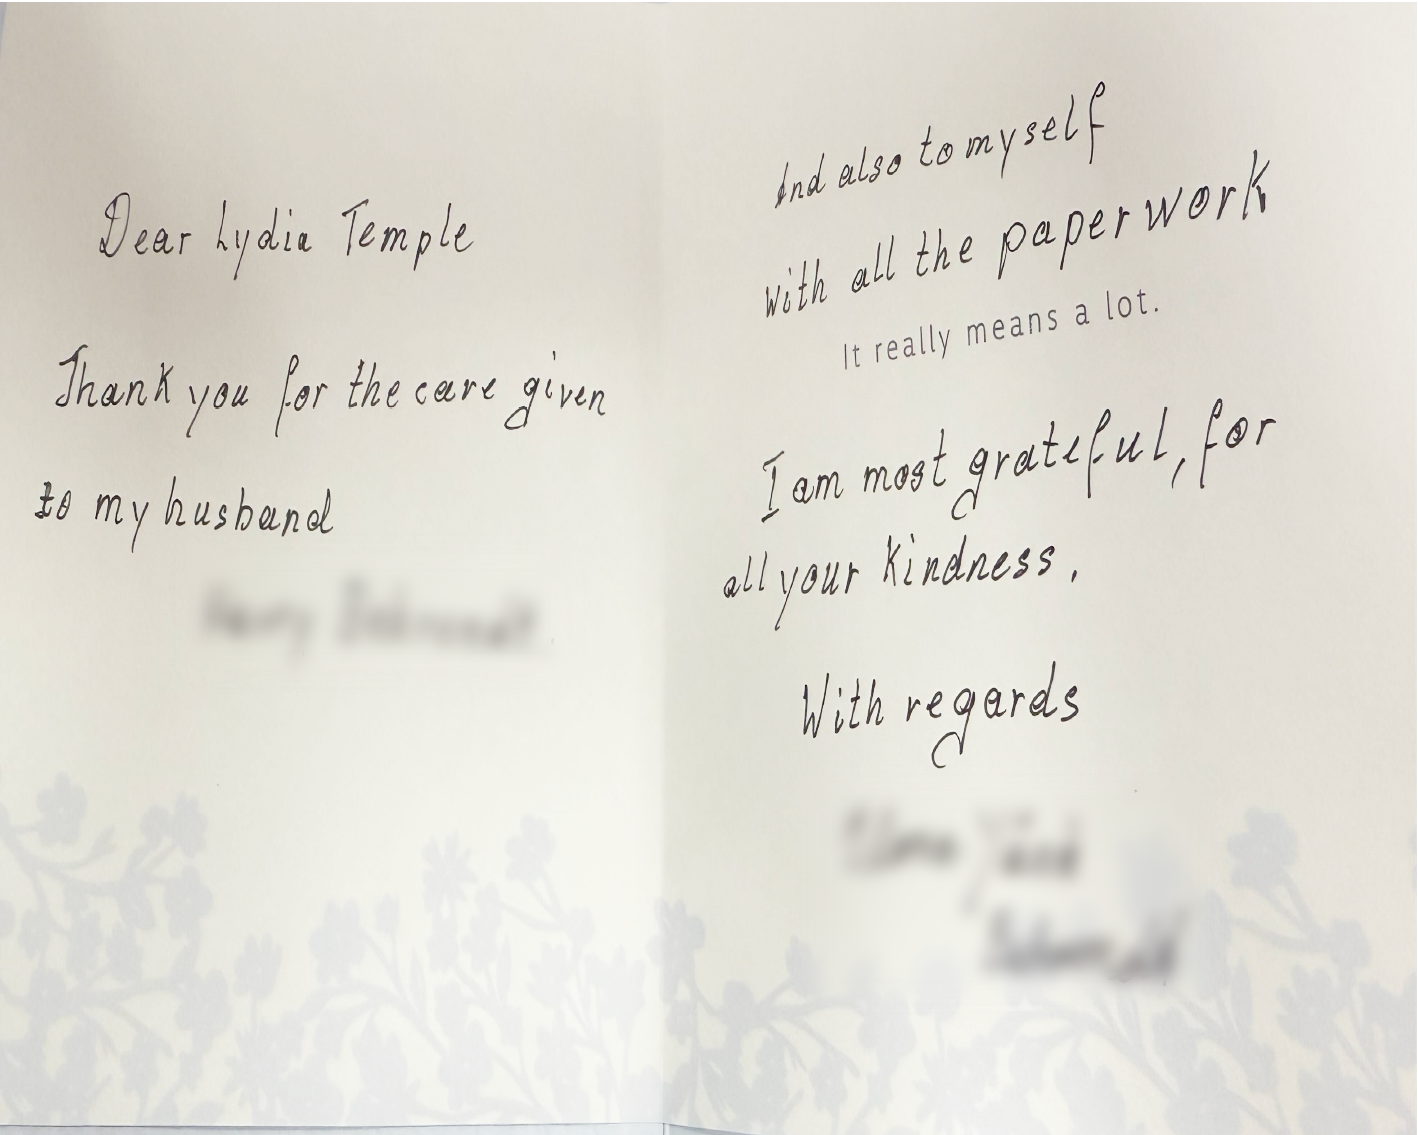 Dear Lydia Temple
Thank you for the care given
to my husband
And also to myself
with all the paper work
It really means a lot.
I am most grateful, for
all your kindness.
With regards